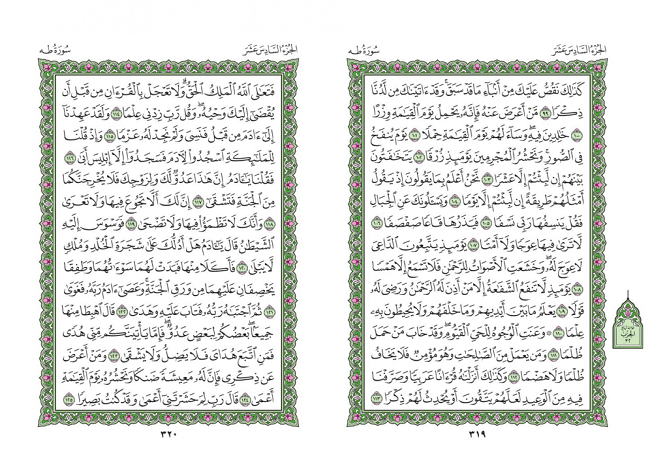 الجُزْءُ السَّادِسَ عَشَرَ
سُورَةُ طه
كَذَٰلِكَ نَقُصُّ عَلَيْكَ مِنْ أَنۢبَآءِ مَا قَدْ سَبَقَۚ وَقَدْ ءَاتَيْنَٰكَ مِن لَّدُنَّا
ذِكْرًا ٩٩ مَّنْ أَعْرَضَ عَنْهُ فَإِنَّهُۥ يَحْمِلُ يَوْمَ ٱلْقِيَٰمَةِ وِزْرًا
١٠٠ خَٰلِدِينَ فِيهِۖ وَسَآءَ لَهُمْ يَوْمَ ٱلْقِيَٰمَةِ حِمْلًا ١٠١ يَوْمَ يُنفَخُ
فِى ٱلصُّورِۚ وَنَحْشُرُ ٱلْمُجْرِمِينَ يَوْمَئِذٍ زُرْقًا ١٠٢ يَتَخَٰفَتُونَ
بَيْنَهُمْ إِن لَّبِثْتُمْ إِلَّا عَشْرًا ١٠٣ نَّحْنُ أَعْلَمُ بِمَا يَقُولُونَ إِذْ يَقُولُ
أَمْثَلُهُمْ طَرِيقَةً إِن لَّبِثْتُمْ إِلَّا يَوْمًا ١٠٤ وَيَسْـَٔلُونَكَ عَنِ ٱلْجِبَالِ
فَقُلْ يَنسِفُهَا رَبِّى نَسْفًا ١٠٥ فَيَذَرُهَا قَاعًا صَفْصَفًا ١٠٦
لَّا تَرَىٰ فِيهَا عِوَجًا وَلَآ أَمْتًا ١٠٧ يَوْمَئِذٍ يَتَّبِعُونَ ٱلدَّاعِىَ
لَا عِوَجَ لَهُۥۖ وَخَشَعَتِ ٱلْأَصْوَاتُ لِلرَّحْمَٰنِ فَلَا تَسْمَعُ إِلَّا هَمْسًا
١٠٨ يَوْمَئِذٍ لَّا تَنفَعُ ٱلشَّفَٰعَةُ إِلَّا مَنْ أَذِنَ لَهُ ٱلرَّحْمَٰنُ وَرَضِىَ لَهُۥ
قَوْلًا ١٠٩ يَعْلَمُ مَا بَيْنَ أَيْدِيهِمْ وَمَا خَلْفَهُمْ وَلَا يُحِيطُونَ بِهِۦ
عِلْمًا ١١٠ ۞ وَعَنَتِ ٱلْوُجُوهُ لِلْحَىِّ ٱلْقَيُّومِۖ وَقَدْ خَابَ مَنْ حَمَلَ
ظُلْمًا ١١١ وَمَن يَعْمَلْ مِنَ ٱلصَّٰلِحَٰتِ وَهُوَ مُؤْمِنٌ فَلَا يَخَافُ
ظُلْمًا وَلَا هَضْمًا ١١٢ وَكَذَٰلِكَ أَنزَلْنَٰهُ قُرْءَانًا عَرَبِيًّا وَصَرَّفْنَا
فِيهِ مِنَ ٱلْوَعِيدِ لَعَلَّهُمْ يَتَّقُونَ أَوْ يُحْدِثُ لَهُمْ ذِكْرًا ١١٣
٣١٩
الجُزْءُ السَّادِسَ عَشَرَ
سُورَةُ طه
فَتَعَٰلَى ٱللَّهُ ٱلْمَلِكُ ٱلْحَقُّۗ وَلَا تَعْجَلْ بِٱلْقُرْءَانِ مِن قَبْلِ أَن
يُقْضَىٰٓ إِلَيْكَ وَحْيُهُۥۖ وَقُل رَّبِّ زِدْنِى عِلْمًا ١١٤ وَلَقَدْ عَهِدْنَآ
إِلَىٰٓ ءَادَمَ مِن قَبْلُ فَنَسِىَ وَلَمْ نَجِدْ لَهُۥ عَزْمًا ١١٥ وَإِذْ قُلْنَا
لِلْمَلَٰٓئِكَةِ ٱسْجُدُوا۟ لِءَادَمَ فَسَجَدُوٓا۟ إِلَّآ إِبْلِيسَ أَبَىٰ ١١٦
فَقُلْنَا يَٰٓـَٔادَمُ إِنَّ هَٰذَا عَدُوٌّ لَّكَ وَلِزَوْجِكَ فَلَا يُخْرِجَنَّكُمَا
مِنَ ٱلْجَنَّةِ فَتَشْقَىٰٓ ١١٧ إِنَّ لَكَ أَلَّا تَجُوعَ فِيهَا وَلَا تَعْرَىٰ
١١٨ وَأَنَّكَ لَا تَظْمَؤُا۟ فِيهَا وَلَا تَضْحَىٰ ١١٩ فَوَسْوَسَ إِلَيْهِ
ٱلشَّيْطَٰنُ قَالَ يَٰٓـَٔادَمُ هَلْ أَدُلُّكَ عَلَىٰ شَجَرَةِ ٱلْخُلْدِ وَمُلْكٍ
لَّا يَبْلَىٰ ١٢٠ فَأَكَلَا مِنْهَا فَبَدَتْ لَهُمَا سَوْءَٰتُهُمَا وَطَفِقَا
يَخْصِفَانِ عَلَيْهِمَا مِن وَرَقِ ٱلْجَنَّةِۚ وَعَصَىٰٓ ءَادَمُ رَبَّهُۥ فَغَوَىٰ
١٢١ ثُمَّ ٱجْتَبَٰهُ رَبُّهُۥ فَتَابَ عَلَيْهِ وَهَدَىٰ ١٢٢ قَالَ ٱهْبِطَا مِنْهَا
جَمِيعًۢاۖ بَعْضُكُمْ لِبَعْضٍ عَدُوٌّۖ فَإِمَّا يَأْتِيَنَّكُم مِّنِّى هُدًى
فَمَنِ ٱتَّبَعَ هُدَاىَ فَلَا يَضِلُّ وَلَا يَشْقَىٰ ١٢٣ وَمَنْ أَعْرَضَ
عَن ذِكْرِى فَإِنَّ لَهُۥ مَعِيشَةً ضَنكًا وَنَحْشُرُهُۥ يَوْمَ ٱلْقِيَٰمَةِ
أَعْمَىٰ ١٢٤ قَالَ رَبِّ لِمَ حَشَرْتَنِىٓ أَعْمَىٰ وَقَدْ كُنتُ بَصِيرًا ١٢٥
٣٢٠